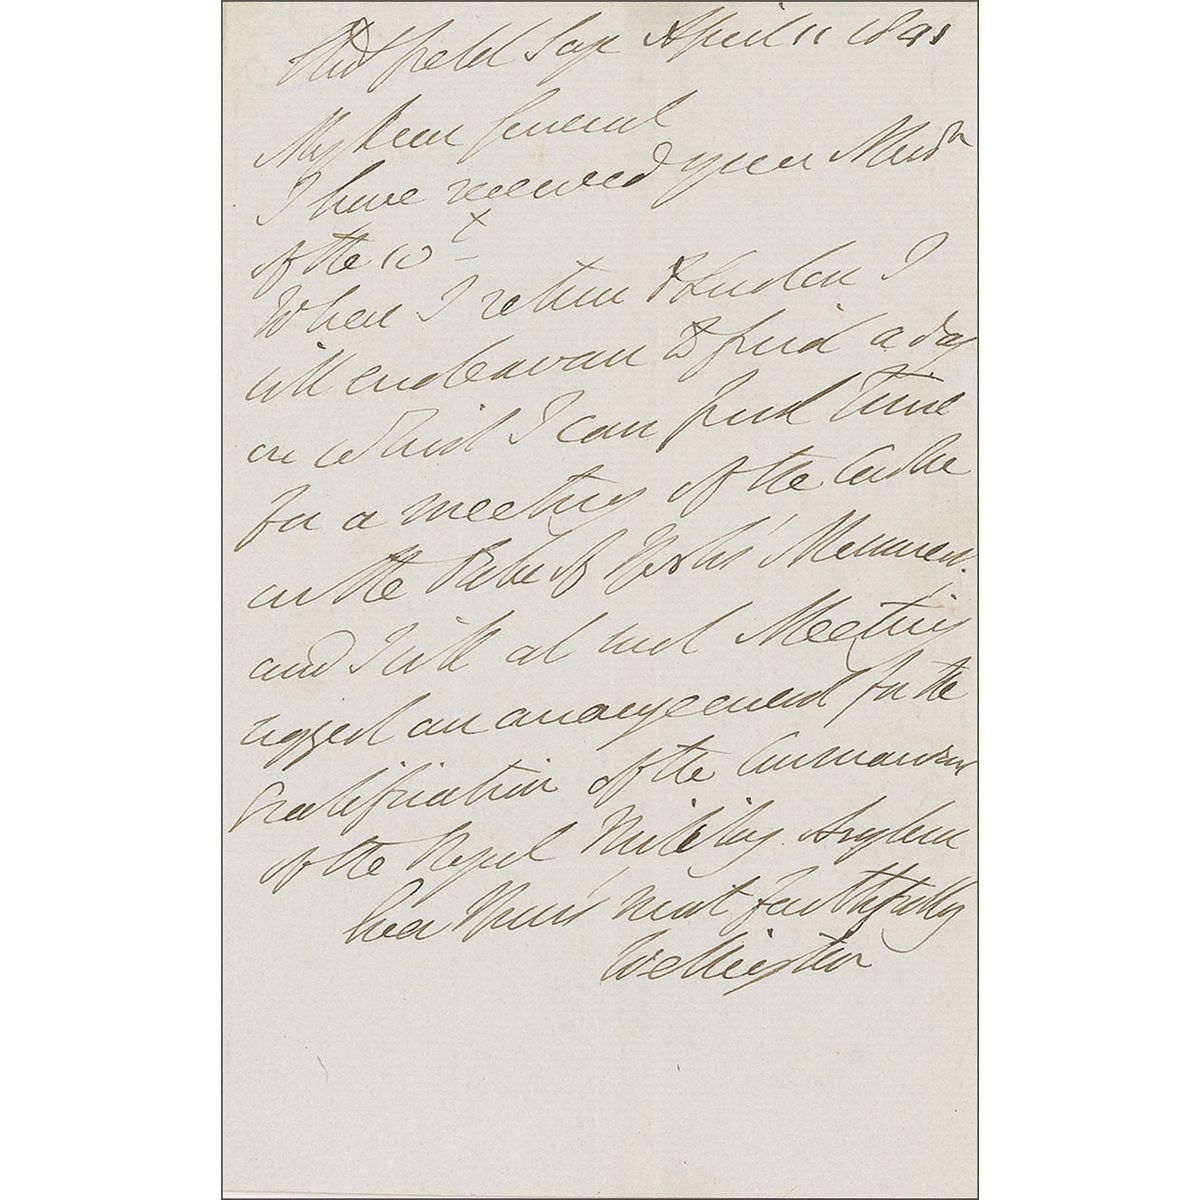 Strathfield Saye April 11 1841
My dear General
I have received your Mem
of the 10th
When I return to London I
will endeavour to find a day
on which I can find Time
for a meeting of the Com
on the Duke of York's Monument.
and I will at next Meeting
suggest an arrangement for the
Gratification of the Commandant
of the Royal Military Asylum
Ever Yours most faithfully
Wellington